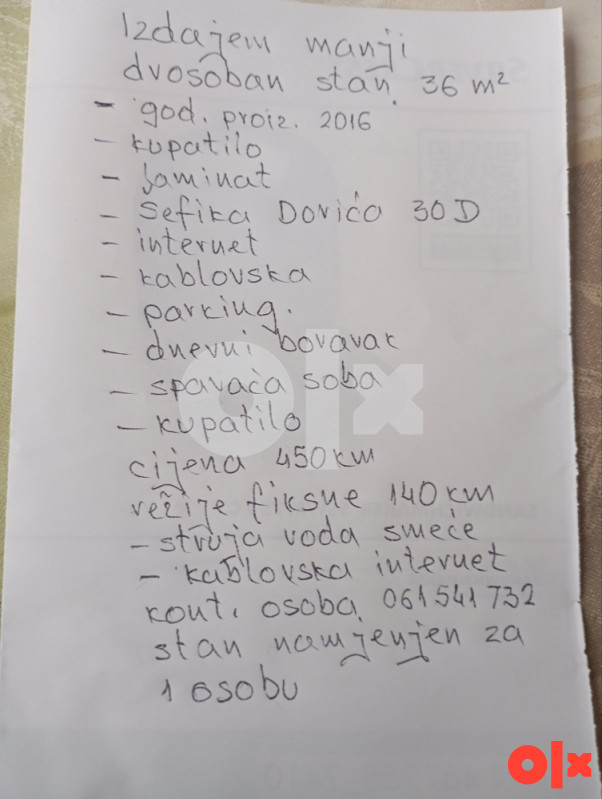 Izdajem manji
dvosoban stan. 36 m²
- god. proiz. 2016
- kupatilo
- laminat
- Šefika Dorića 30 D
- internet
- kablovska
- parking.
- dnevni boravak
- spavaća soba
- kupatilo
cijena 450 km
režije fiksne 140 km
- struja voda smeće
- kablovska internet
kont. osoba 061 541 732
stan namjenjen za
1 osobu
olx
olx